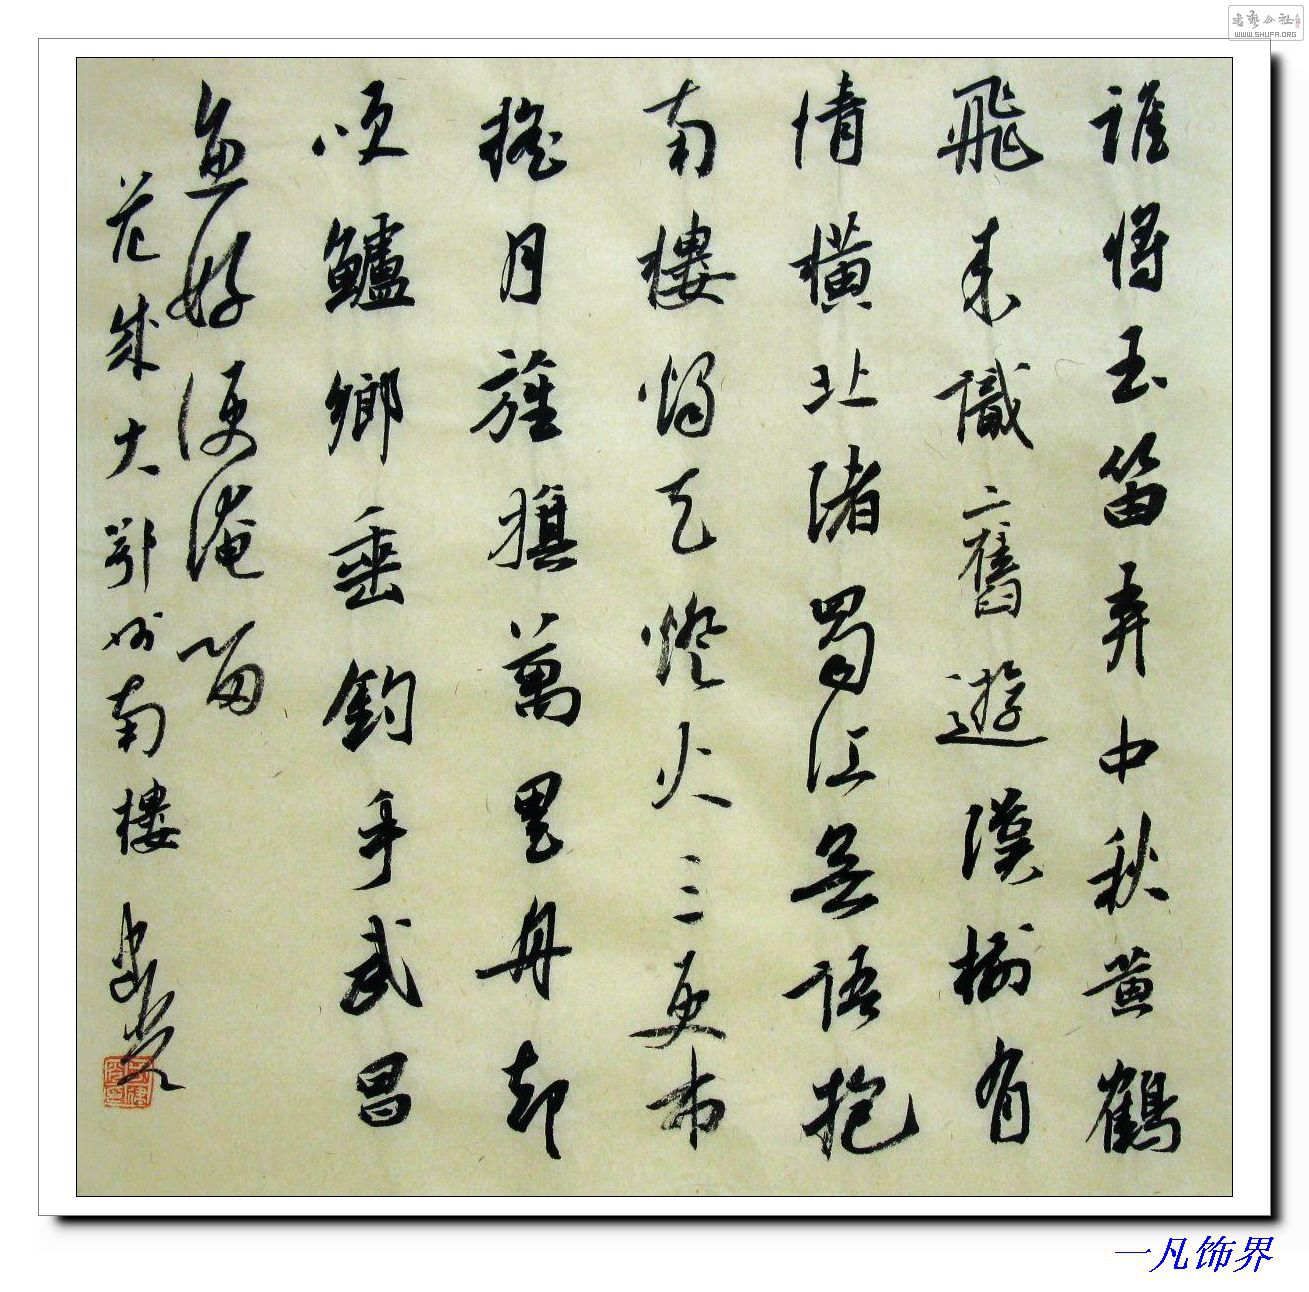 誰將玉笛弄中秋黄鶴
飛來識舊遊漢樹有
情橫北渚蜀江無語抱
南樓燭天燈火三更市
搖月旌旗萬里舟却
笑鱸鄉垂釣手武昌
魚好便淹留
范成大鄂州南樓
WWW.SHUFA.ORG
一凡饰界